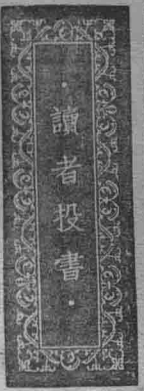 ·讀者投書·